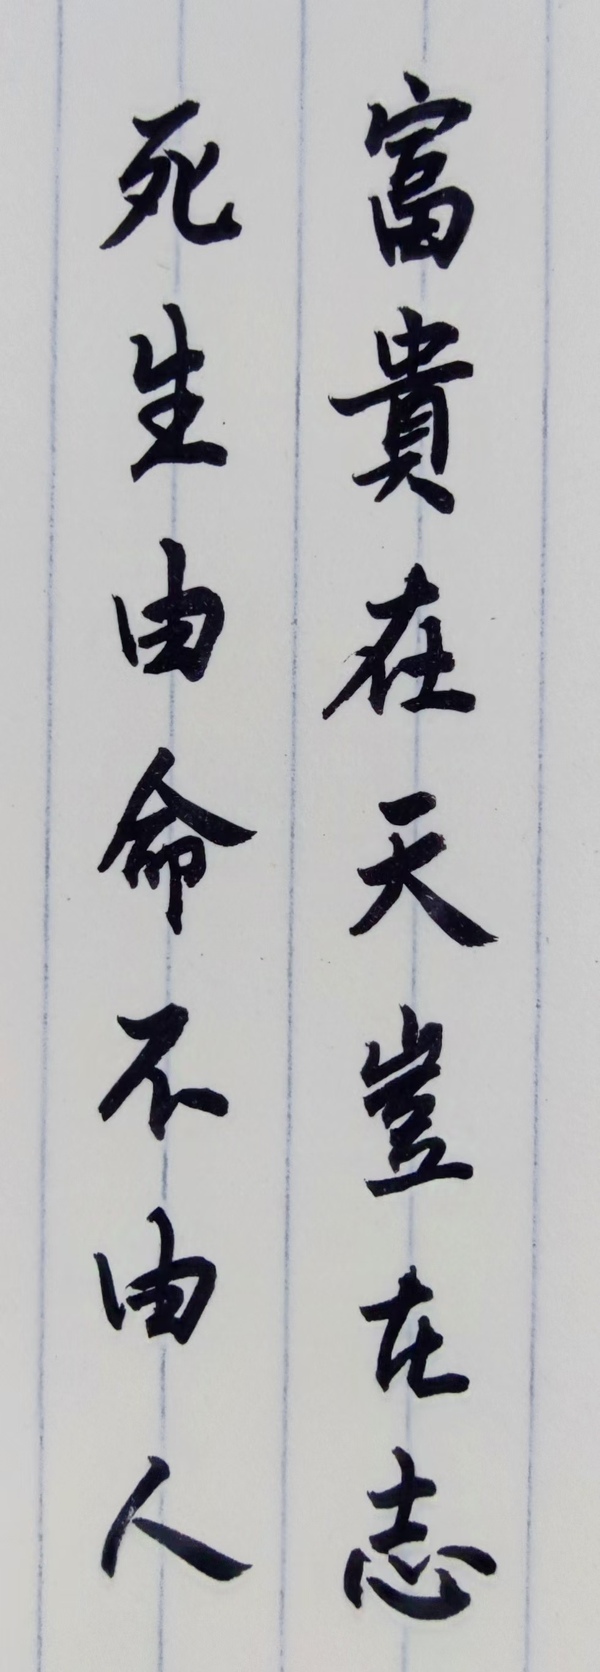 富貴在天豈在志
死生由命不由人